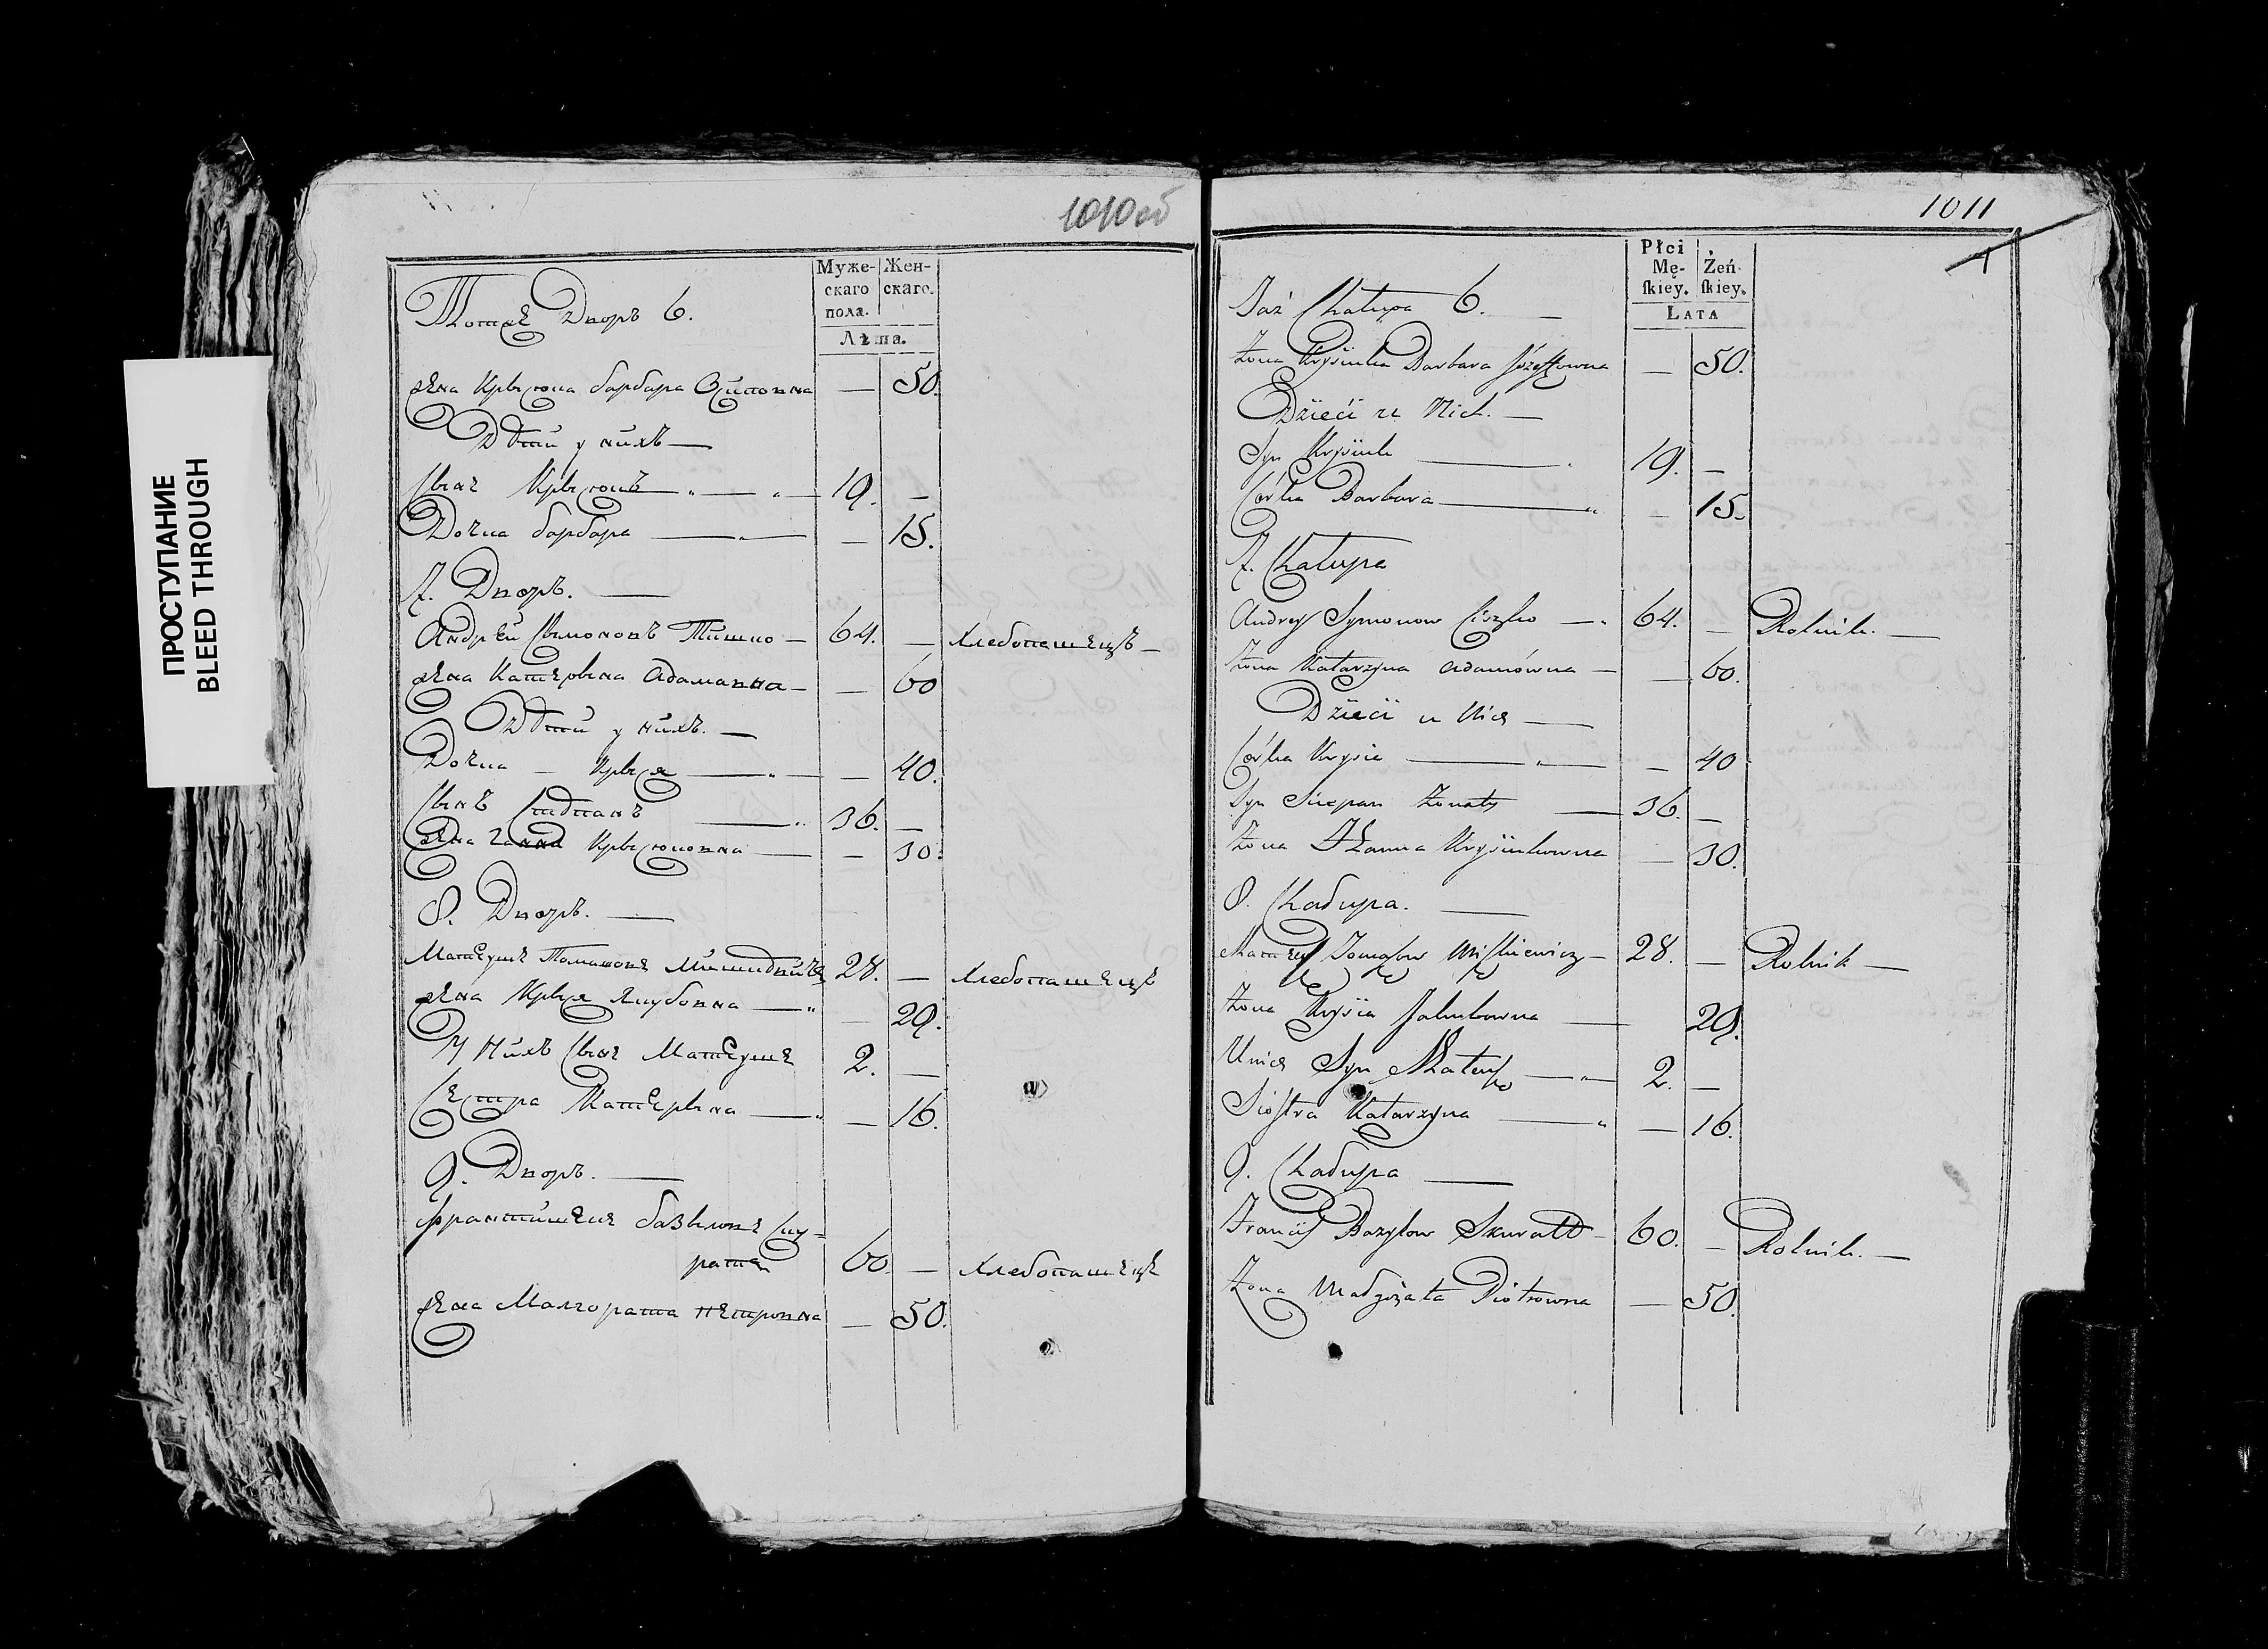 ПРОСТУПАНИЕ
BLEED THROUGH
1010об
Муже-
скаго
пола.
Жен-
скаго.
Лѣта.
Тотже Дворъ 6.
Жена Крысюка барбара Осиповна — 50.
Дѣти у нихъ —
Сынъ Крысюкъ — 19. —
Дочка барбара — — 15.
7. Дворъ. —
Андрей Сымоновъ Тишко — 64. — хлебопашецъ —
Жена Катерына Адамовна — — 60
Дѣти у нихъ. —
Дочка — Крыся — — 40.
Сынъ — 36. —
Жена Ганна Крысюковна — — 30.
8. Дворъ. —
Матеушъ Томашовъ 28. — хлебопашецъ
Жена Крыся Якубовна — — 29.
У Нихъ Сынъ Матеушъ 2. —
Сестра Катерына — — 16.
9. Дворъ. —
Францишекъ базылювъ Ску-
ратъ 60. — хлебопашецъ
Жена Малгората петровна — 50.
1011
Płci
Mę-
ſkiey.
Żeń-
ſkiey.
LATA
Taż Chałupa 6. —
Żona Krysiuka Barbara Józefowna — 50.
Dzieci u Nich. —
Syn Krysiuk — 19. —
Córka Barbara — — 15.
7. Chałupa
Andrey Symonow Ciszko — 64. — Rolnik. —
Żona Katarzyna Adamówna — — 60.
Dzieci u Nich —
Córka Krysia — — 40
Syn Sciepan Żonaty — 36. —
Żona Hanna Krysiukowna — 30.
8. Chałupa. —
Mateusz Tomaszow Miſkiewicz — 28. — Rolnik —
Żona Krysia Jakubowna — 29.
U nich Syn Mateusz — 2. —
Siostra Katarzyna — — 16.
9. Chałupa —
Franciſ Bazylow Skuratt — 60. — Rolnik. —
Żona Małgorzata Piotrowna — 50.